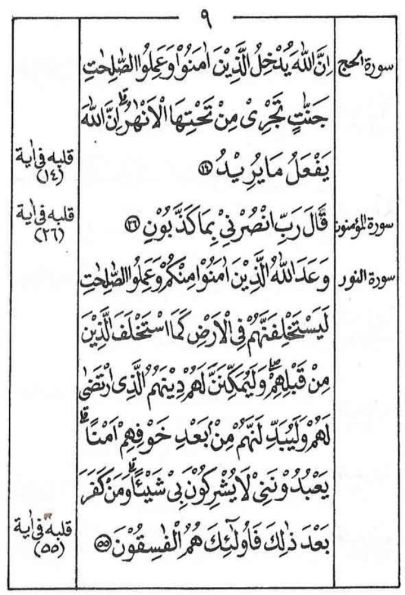 ٩
سورة الحج
اِنَّ اللّٰهَ يُدْخِلُ الَّذِيْنَ اٰمَنُوْا وَعَمِلُوا الصّٰلِحٰتِ
جَنّٰتٍ تَجْرِىْ مِنْ تَحْتِهَا الْاَنْهٰرُ ؕ اِنَّ اللّٰهَ
يَفْعَلُ مَا يُرِيْدُ ⑭
قلبه فى اٰية
(١٤)
سورة المؤمنون
قَالَ رَبِّ انْصُرْنِىْ بِمَا كَذَّبُوْنِ ㉖
قلبه فى اٰية
(٢٦)
سورة النور
وَعَدَ اللّٰهُ الَّذِيْنَ اٰمَنُوْا مِنْكُمْ وَعَمِلُوا الصّٰلِحٰتِ
لَيَسْتَخْلِفَنَّهُمْ فِى الْاَرْضِ كَمَا اسْتَخْلَفَ الَّذِيْنَ
مِنْ قَبْلِهِمْ ۪ وَلَيُمَكِّنَنَّ لَهُمْ دِيْنَهُمُ الَّذِى ارْتَضٰى
لَهُمْ وَلَيُبَدِّلَنَّهُمْ مِنْۢ بَعْدِ خَوْفِهِمْ اَمْنًا ؕ
يَعْبُدُوْنَنِىْ لَا يُشْرِكُوْنَ بِىْ شَيْئًا ؕ وَمَنْ كَفَرَ
بَعْدَ ذٰلِكَ فَاُولٰٓئِكَ هُمُ الْفٰسِقُوْنَ ㊺
قلبه فى اٰية
(٥٥)